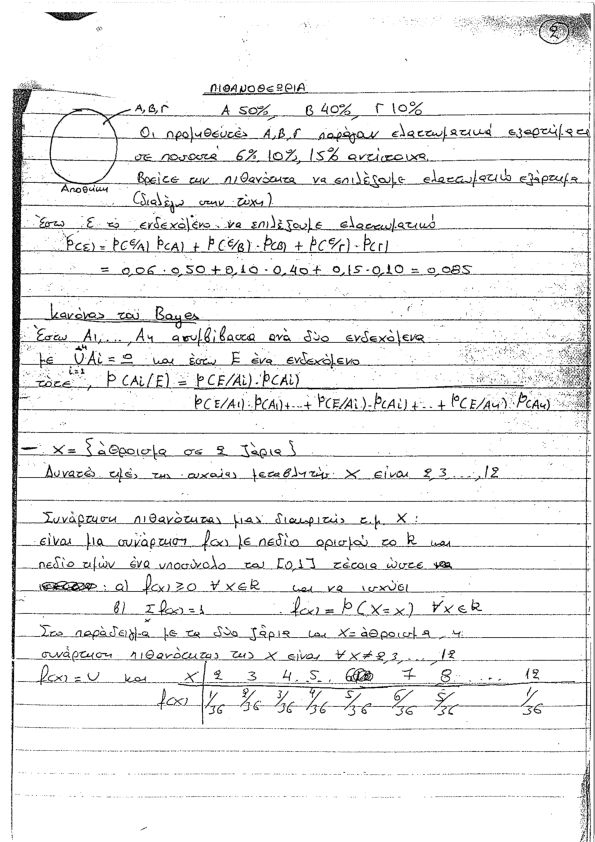 2
ΠΙΘΑΝΟΘΕΩΡΙΑ
Α, Β, Γ Α 50%, Β 40%, Γ 10%
Οι προμηθευτές Α, Β, Γ παράγουν ελαττωματικά εξαρτήματα
σε ποσοστά 6%, 10%, 15% αντίστοιχα.
Βρείτε την πιθανότητα να επιλέξουμε ελαττωματικό εξάρτημα
Αποθήκη
(διαλέγω στην τύχη)
Έστω Ε το ενδεχόμενο να επιλέξουμε ελαττωματικό
P(E) = P(E/A) P(A) + P(E/B) · P(B) + P(E/Γ) · P(Γ)
= 0,06 · 0,50 + 0,10 · 0,40 + 0,15 · 0,10 = 0,085
Κανόνας του Bayes
Έστω A1, ..., Aν ασυμβίβαστα ανά δύο ενδεχόμενα
με ∪Ai = Ω και έστω E ένα ενδεχόμενο
i=1
τότε, P(Ai/E) = P(E/Ai) · P(Ai)
P(E/A1) · P(A1) + ... + P(E/Ai) · P(Ai) + ... + P(E/Aν) · P(Aν)
– X = {άθροισμα σε 2 ζάρια}
Δυνατές τιμές της τυχαίας μεταβλητής X είναι 2, 3, ..., 12
Συνάρτηση πιθανότητας μιας διακριτής τ.μ. X :
είναι μια συνάρτηση f(x) με πεδίο ορισμού το k και
πεδίο τιμών ένα υποσύνολο του [0,1] τέτοια ώστε
: α) f(x) ≥ 0 ∀ x ∈ k και να ισχύει
β) Σ f(x) = 1 f(x) = P(X = x) ∀ x ∈ k
x
Στο παράδειγμα με τα δύο ζάρια και X = άθροισμα, η
συνάρτηση πιθανότητας της X είναι ∀ x ≠ 2, 3, ..., 12
f(x) = 0 και X 2 3 4 5 6 7 8 .... 12
f(x) 1/36 2/36 3/36 4/36 5/36 6/36 5/36 1/36